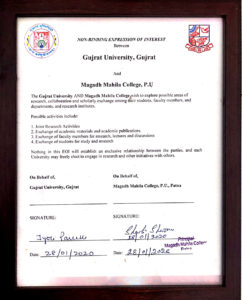 NON-BINDING EXPRESSION OF INTEREST
Between
Gujrat University, Gujrat
And
Magadh Mahila College, P.U
The Gujrat University AND Magadh Mahila College wish to explore possible areas of
research, collaboration and scholarly exchange among their students, faculty members, and
departments, and research institutes.
Possible activities include:
1. Joint Research Activities
2. Exchange of academic materials and academic publications
3. Exchange of faculty members for research, lectures and discussions
4. Exchange of students for study and research
Nothing in this EOI will establish an exclusive relationship between the parties, and each
University may freely choose engage in research and other initiatives with others.
On Behalf of,
On Behalf of,
Gujrat University, Gujrat
Magadh Mahila College, P.U., Patna
SIGNATURE:
SIGNATURE:
28/01/2020
Principal
Magadh Mahila College
Patna
Date: 28/01/2020
Date: 28/01/2020